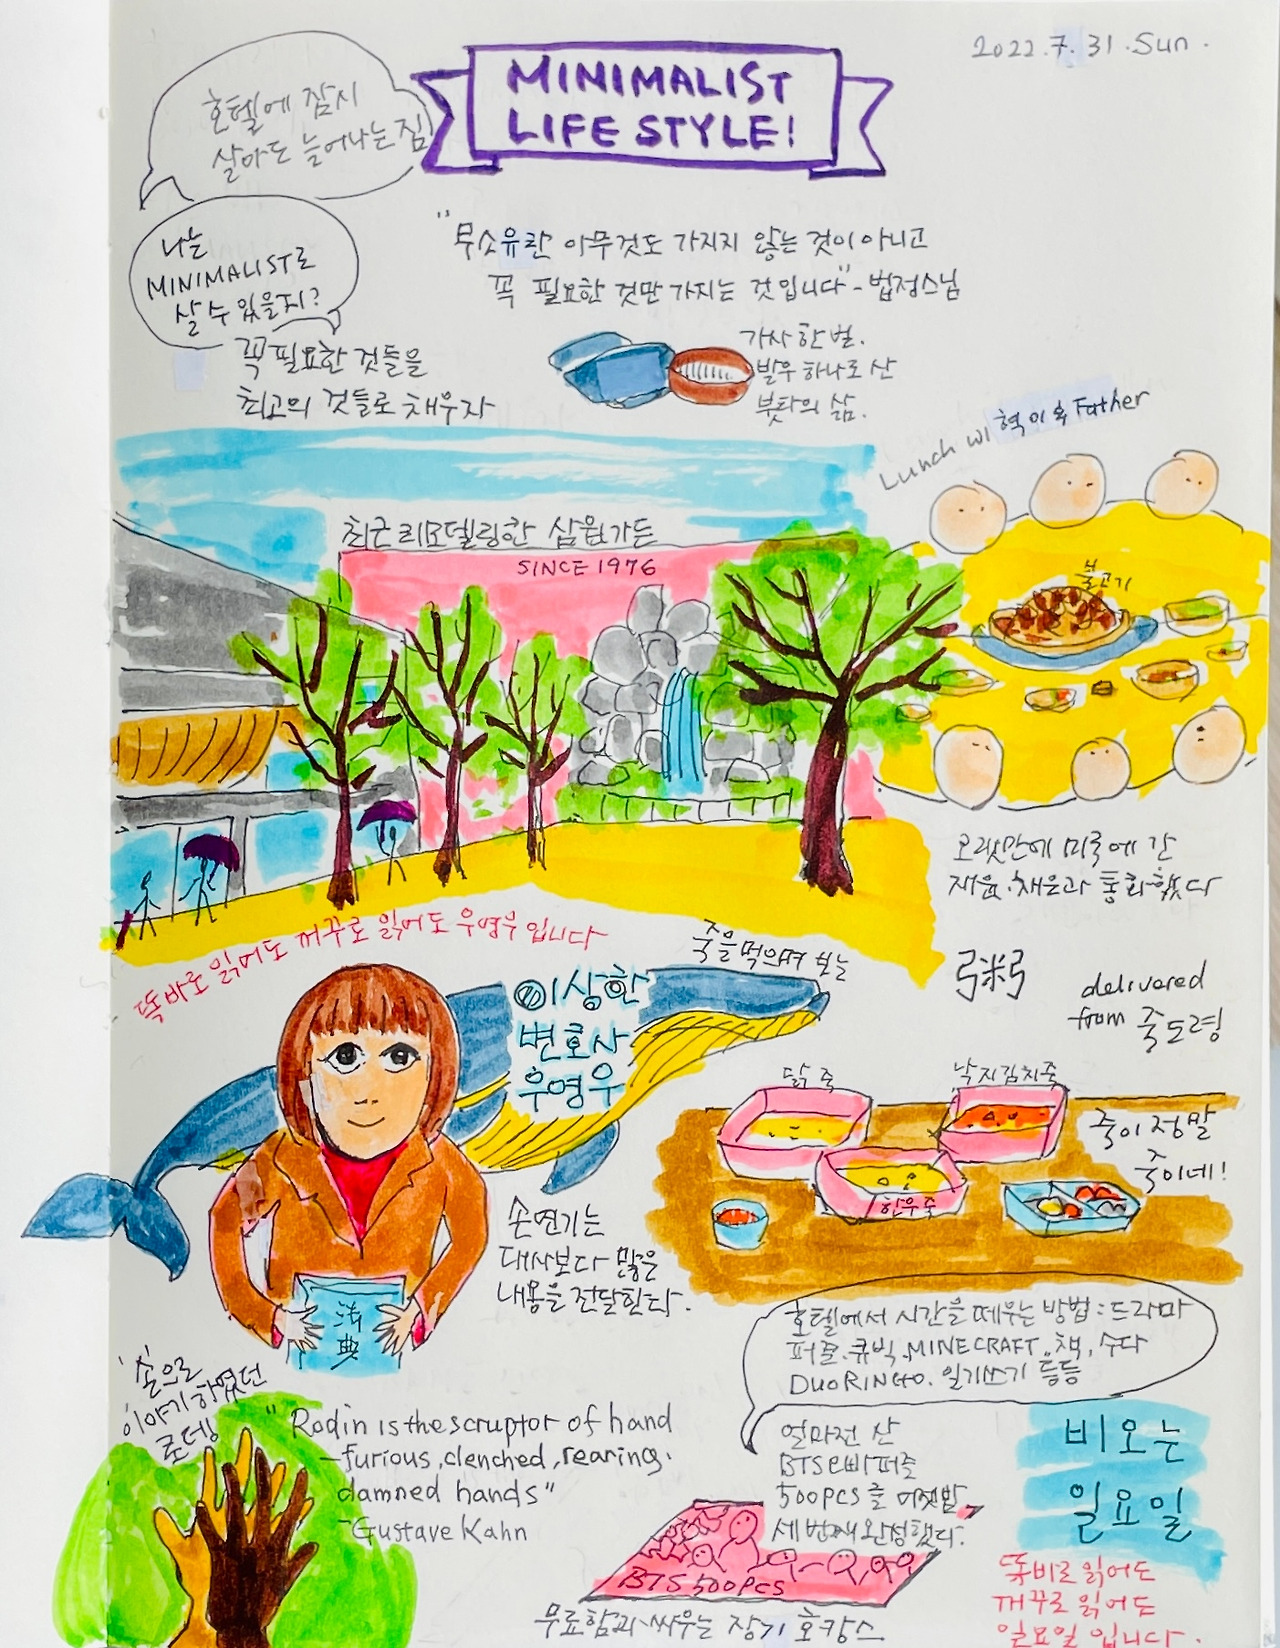 2022.7.31.Sun.
MINIMALIST
LIFE STYLE!
호텔에 잠시
살아도 늘어나는 짐
나는
MINIMALIST로
살 수 있을지?
"무소유란 아무것도 가지지 않는 것이 아니고
꼭 필요한 것만 가지는 것입니다"-법정스님
꼭 필요한 것들을
최고의 것들로 채우자
가사 한 벌.
발우 하나로 산
붓다의 삶.
Lunch w/ 혁이 & Father
최근 리모델링한 삼원가든
SINCE 1976
불고기
오랫만에 미국에 간
재윤.채은과 통화했다
똑바로 읽어도 꺼꾸로 읽어도 우영우 입니다
죽을 먹으며 보는
이상한
변호사
우영우
粥
delivered
from 죽도령
닭죽
낙지김치죽
한우죽
죽이 정말
죽이네!
손연기는
대사보다 많은
내용을 전달한다.
法
典
호텔에서 시간을 떼우는 방법:드라마
퍼즐.큐빅.MINECRAFT.책, 수다
DUORINGO. 일기쓰기 등등
'손'으로
이야기하였던
로뎅
"Rodin is the scruptor of hand
-furious, clenched, rearing.
damned hands"
-Gustave Kahn
얼마전 산
BTS 퍼즐
500pcs 를 어젯밤
세 번째 완성했다.
BTS 500PCS
무료함과 싸우는 장기 호캉스
비오는
일요일
똑바로 읽어도
꺼꾸로 읽어도
일요일 입니다.